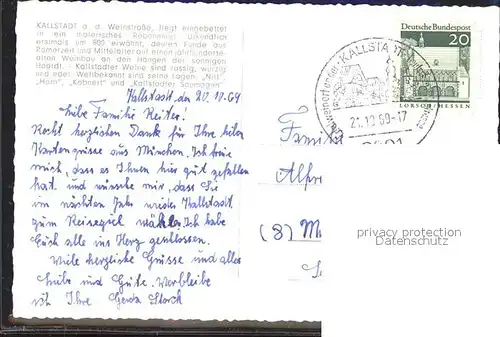 KALLSTADT a. d. Weinstraße, liegt eingebettet
in ein malerisches Rebenmeer. Urkundlich
erstmals um 800 erwähnt, deuten Funde aus
Römerzeit und Mittelalter auf einen jahrtausende-
alten Weinbau an den Hängen der sonnigen
Haardt. Kallstadter Weine sind rassig, würzig
und edel. Weltbekannt sind seine Lagen: „Nill"
„Horn", „Kobnert" und „Kallstadter Saumagen"
Kallstadt, den 20.10.69
Liebe Familie Reiter!
Recht herzlichen Dank für Ihre lieben
Kartengrüsse aus München. Ich freue
mich, dass es Ihnen hier gut gefallen
hat und wünsche mir, dass Sie
im nächten Jahr wieder Kallstadt
zum Reiseziel wählen. Ich habe
Euch alle ins Herz geschlossen.
Viele herzliche Grüsse und alles
Liebe und Gute. Verbleibe
ich Ihre Gerda Storck
KALLSTADT
21.10.69-17
Deutsche Bundespost
20
LORSCH/HESSEN
Famil
Alfre
(8) M
privacy protection
Datenschutz